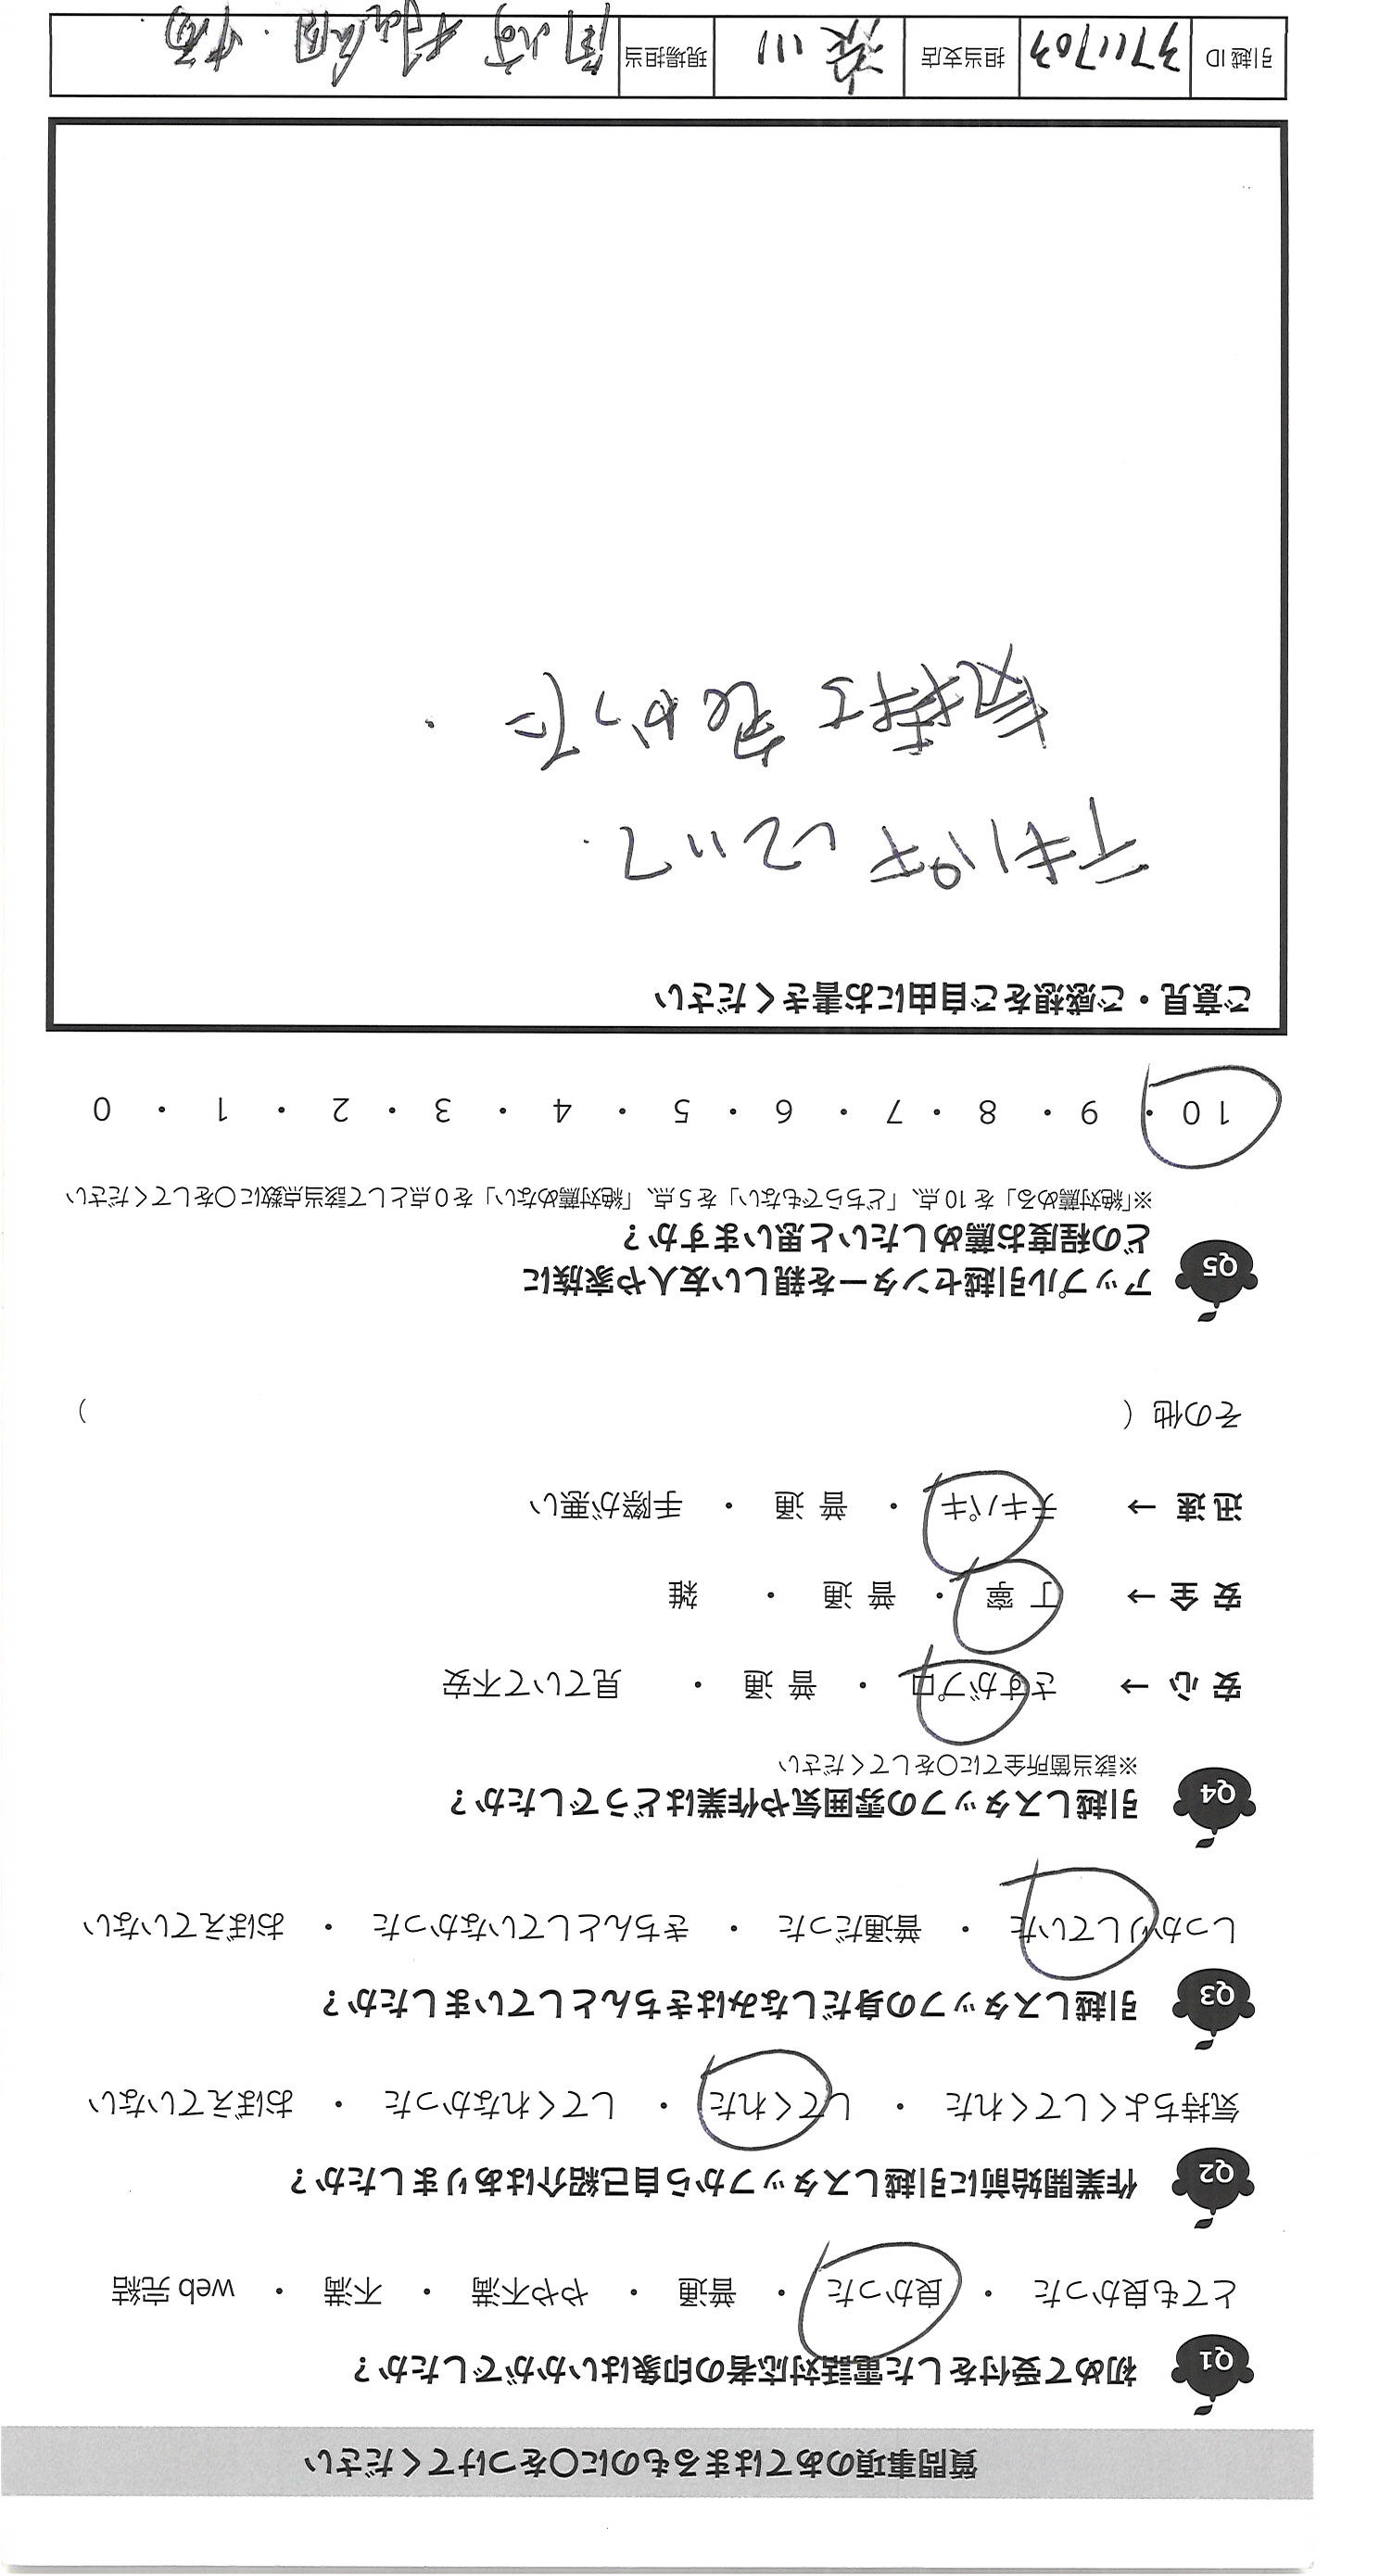 質問事項のあてはまるものに〇をつけてください
Q1 初めて受付をした電話対応者の印象はいかがでしたか？
とても良かった ・ 良かった ・ 普通 ・ やや不満 ・ 不満 ・ web 完結
Q2 作業開始前に引越しスタッフから自己紹介はありましたか？
気持ちよくしてくれた ・ してくれた ・ してくれなかった ・ おぼえていない
Q3 引越しスタッフの身だしなみはきちんとしていましたか？
しっかりしていた ・ 普通だった ・ きちんとしていなかった ・ おぼえていない
Q4 引越しスタッフの雰囲気や作業はどうでしたか？
※該当箇所全てに〇をしてください
安 心 → さすがプロ ・ 普 通 ・ 見ていて不安
安 全 → 丁 寧 ・ 普 通 ・ 雑
迅 速 → テキパキ ・ 普 通 ・ 手際が悪い
その他（ ）
Q5 アップル引越センターを親しい友人や家族に
どの程度お薦めしたいと思いますか？
※「絶対薦める」を 10 点、「どちらでもない」を 5 点、「絶対薦めない」を 0 点として該当点数に〇をしてください
10 ・ 9 ・ 8 ・ 7 ・ 6 ・ 5 ・ 4 ・ 3 ・ 2 ・ 1 ・ 0
ご意見・ご感想をご自由にお書きください
テキパキしていて
気持ち良かった．
引越 ID 3711703 担当支店 川 現場担当